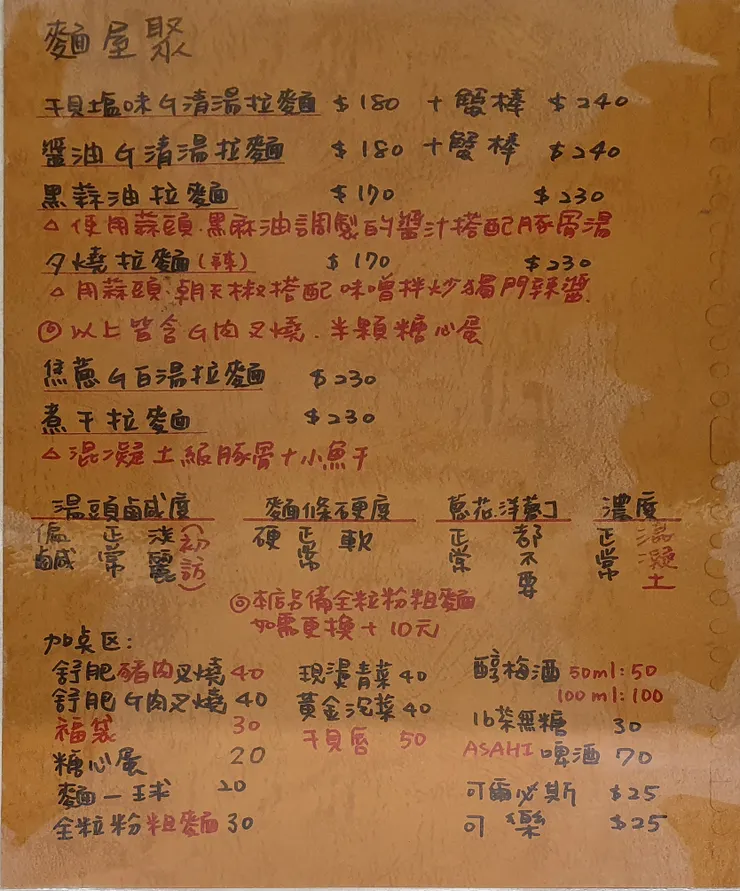 麵屋聚
干貝塩味G清湯拉麵 $180 +蟹棒 $240
醬油G清湯拉麵 $180 +蟹棒 $240
黑蒜油拉麵 $170 $230
△使用蒜頭.黑麻油調製的醬汁搭配豚骨湯
夕燒拉麵(辣) $170 $230
△用蒜頭.朝天椒搭配味噌拌炒獨門辣醬
◎以上皆含G肉叉燒.半顆糖心蛋
焦蔥G白湯拉麵 $230
煮干拉麵 $230
△混凝土級豚骨+小魚干
湯頭鹹度 麵條硬度 蔥花.洋蔥丁 濃度
偏鹹 正常 淡麗(初訪) 硬 正常 軟 正常 都不要 正常 混凝土
◎本店另備全粒粉粗麵
如需更換+10元
加桌区:
舒肥豬肉叉燒 40 現燙青菜 40 醇梅酒 50ml:50
100ml:100
舒肥G肉叉燒 40 黃金泡菜 40
福袋 30 干貝唇 50 1b茶無糖 30
糖心蛋 20 ASAHI啤酒 70
麵一球 20 可爾必斯 $25
全粒粉粗麵 30 可樂 $25